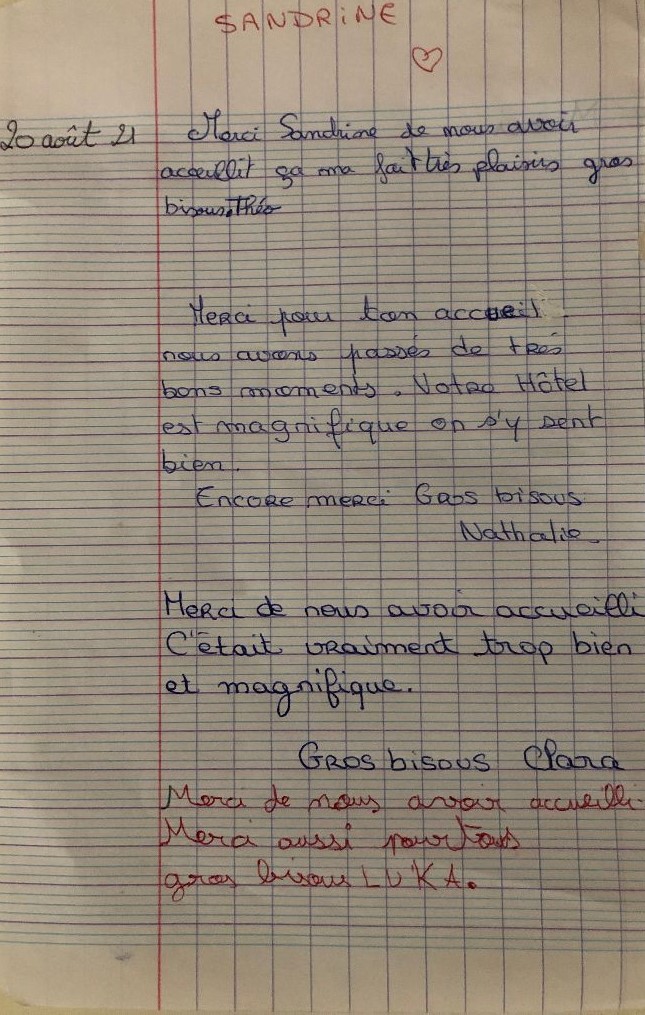 SANDRiNE
20 août 21
Merci Sandrine de nous avoir
acceuillit ça ma fait très plaisirs gros
bisous Théo
Merci pour ton accueil
nous avons passés de très
bons moments. Votre Hôtel
est magnifique on s'y sent
bien.
Encore merci Gros bisous
Nathalie
Merci de nous avoir accueilli
C'était vraiment trop bien
et magnifique.
Gros bisous Clara
Merci de nous avoir accueilli.
Merci aussi pour tous
gros bisous LUKA.